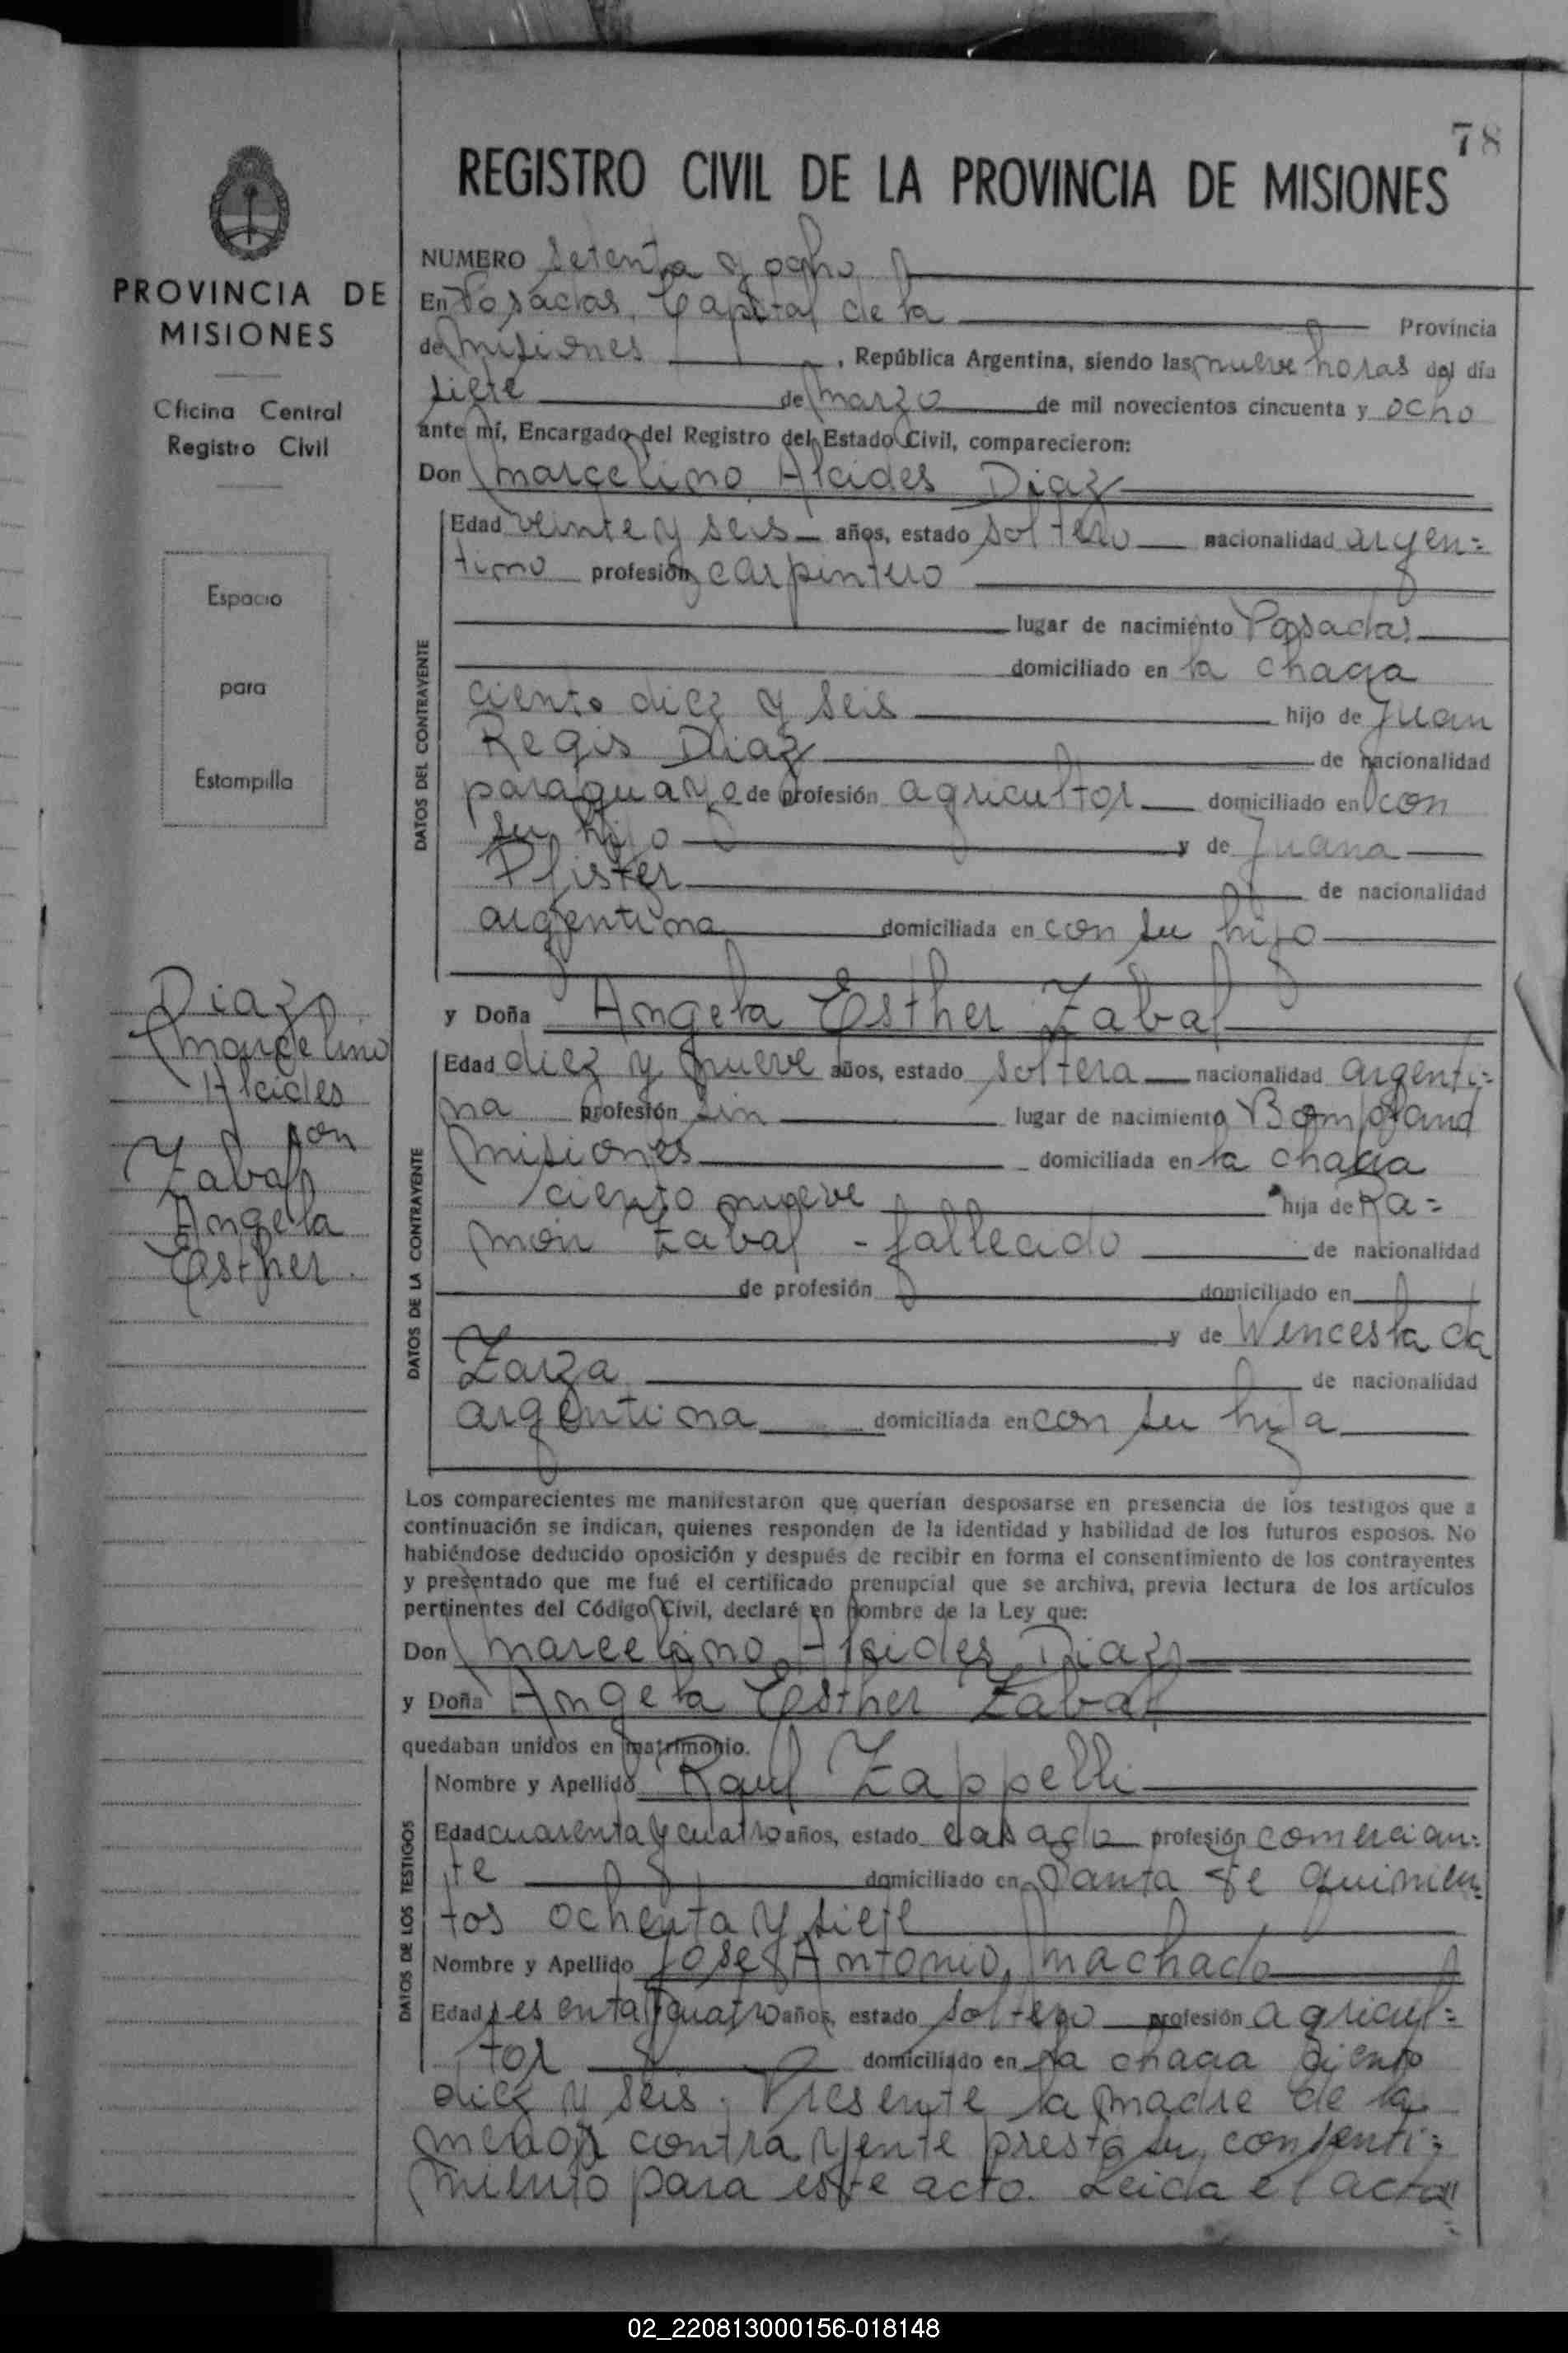 78
REGISTRO CIVIL DE LA PROVINCIA DE MISIONES
PROVINCIA DE
MISIONES
Oficina Central
Registro Civil
Espacio
para
Estampilla
Diaz
Marcelino
Alcides
con
Zabal
Angela
Esther.
NUMERO setenta y ocho
En Posadas, Capital de la Provincia
de Misiones, República Argentina, siendo las nueve horas del día
siete de Marzo de mil novecientos cincuenta y ocho
ante mí, Encargado del Registro del Estado Civil, comparecieron:
Don Marcelino Alcides Diaz
DATOS DEL CONTRAYENTE
Edad veinte y seis años, estado soltero nacionalidad argen=
tino profesión carpintero
lugar de nacimiento Posadas
domiciliado en la chacra
ciento diez y seis hijo de Juan
Regis Diaz de nacionalidad
paraguayo de profesión agricultor domiciliado en con
su hijo y de Juana
Pfister de nacionalidad
argentina domiciliada en con su hijo
y Doña Angela Esther Zabal
DATOS DE LA CONTRAYENTE
Edad diez y nueve años, estado soltera nacionalidad argenti=
na profesión sin lugar de nacimiento Bompland
Misiones domiciliada en la chacra
ciento nueve hija de Ra=
món Zabal - fallecido de nacionalidad
de profesión domiciliado en
y de Wenceslada
Zarza de nacionalidad
argentina domiciliada en con su hija
Los comparecientes me manifestaron que querían desposarse en presencia de los testigos que a
continuación se indican, quienes responden de la identidad y habilidad de los futuros esposos. No
habiéndose deducido oposición y después de recibir en forma el consentimiento de los contrayentes
y presentado que me fué el certificado prenupcial que se archiva, previa lectura de los artículos
pertinentes del Código Civil, declaré en nombre de la Ley que:
Don Marcelino Alcides Diaz
y Doña Angela Esther Zabal
quedaban unidos en matrimonio.
DATOS DE LOS TESTIGOS
Nombre y Apellido Raul Zappelli
Edad cuarenta y cuatro años, estado casado profesión comercian=
te domiciliado en Santa Fe quinien=
tos ochenta y siete
Nombre y Apellido José Antonio Machado
Edad sesenta y cuatro años, estado soltero profesión agricul=
tor domiciliado en la chacra ciento
diez y seis. Presente la madre de la
menor contrayente presta su consenti=
miento para este acto. Leida el acta
02_220813000156-018148